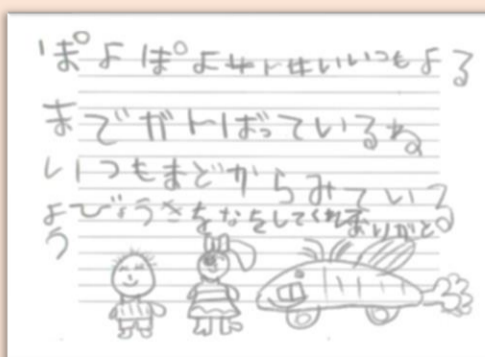 ぽよぽよサトせいいつもよる
までがトばっているね
いつもまどからみている
よびょうきをなをしてくれてありがと
う